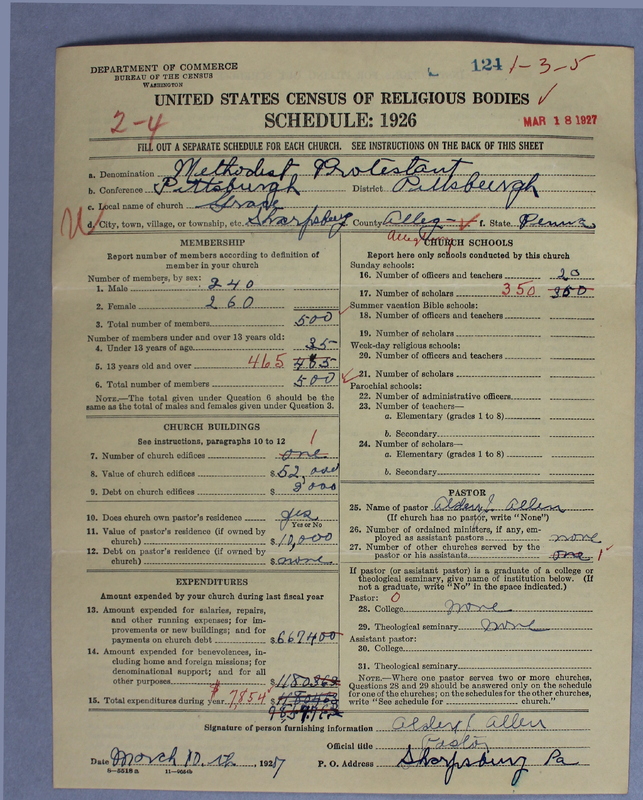 DEPARTMENT OF COMMERCE
BUREAU OF THE CENSUS
WASHINGTON
124 1-3-5
UNITED STATES CENSUS OF RELIGIOUS BODIES
2-4
SCHEDULE: 1926
MAR 18 1927
FILL OUT A SEPARATE SCHEDULE FOR EACH CHURCH. SEE INSTRUCTIONS ON THE BACK OF THIS SHEET
a. Denomination Methodist Protestant
b. Conference Pittsburgh District Pittsburgh
c. Local name of church Grace
d. City, town, village, or township, etc. Sharpsburg County Alleg- f. State Penna
MEMBERSHIP
Report number of members according to definition of
member in your church
Number of members, by sex:
1. Male 240
2. Female 260
3. Total number of members 500
Number of members under and over 13 years old:
4. Under 13 years of age 35
5. 13 years old and over 465
6. Total number of members 500
NOTE.—The total given under Question 6 should be the
same as the total of males and females given under Question 3.
CHURCH BUILDINGS
See instructions, paragraphs 10 to 12
7. Number of church edifices one 1
8. Value of church edifices $52,000
9. Debt on church edifices $
10. Does church own pastor's residence yes
Yes or No
11. Value of pastor's residence (if owned by
church) $10,000
12. Debt on pastor's residence (if owned by
church) $none
EXPENDITURES
Amount expended by your church during last fiscal year
13. Amount expended for salaries, repairs,
and other running expenses; for im-
provements or new buildings; and for
payments on church debt $667400
14. Amount expended for benevolences, in-
cluding home and foreign missions; for
denominational support; and for all
other purposes
15. Total expenditures during year $7,854
CHURCH SCHOOLS
Report here only schools conducted by this church
Sunday schools:
16. Number of officers and teachers 20
17. Number of scholars 350 350
Summer vacation Bible schools:
18. Number of officers and teachers
19. Number of scholars
Week-day religious schools:
20. Number of officers and teachers
21. Number of scholars
Parochial schools:
22. Number of administrative officers
23. Number of teachers—
a. Elementary (grades 1 to 8)
b. Secondary
24. Number of scholars—
a. Elementary (grades 1 to 8)
b. Secondary
PASTOR
25. Name of pastor Allen
(If church has no pastor, write "None")
26. Number of ordained ministers, if any, em-
ployed as assistant pastors none
27. Number of other churches served by the
pastor or his assistants one 1
If pastor (or assistant pastor) is a graduate of a college or
theological seminary, give name of institution below. (If
not a graduate, write "No" in the space indicated.)
Pastor: 0
28. College none
29. Theological seminary none
Assistant pastor:
30. College
31. Theological seminary
NOTE.—Where one pastor serves two or more churches,
Questions 28 and 29 should be answered only on the schedule
for one of the churches; on the schedules for the other churches,
write "See schedule for church."
Signature of person furnishing information Allen
Official title Pastor
Date March 10. th, 1927 P. O. Address Sharpsburg Pa
8-5518a 11-9054b